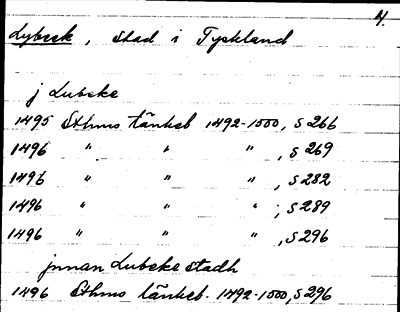 4.
Lybeck, stad i Tyskland
j Lubeke
1495 Sthms tänkeb 1492-1500, s 266
1496 " " " , s 269
1496 " " " , s 282
1496 " " " ; s 289
1496 " " " , s 296
jnnan Lubeke stadh
1496 Sthms tänkeb. 1492-1500, s 296